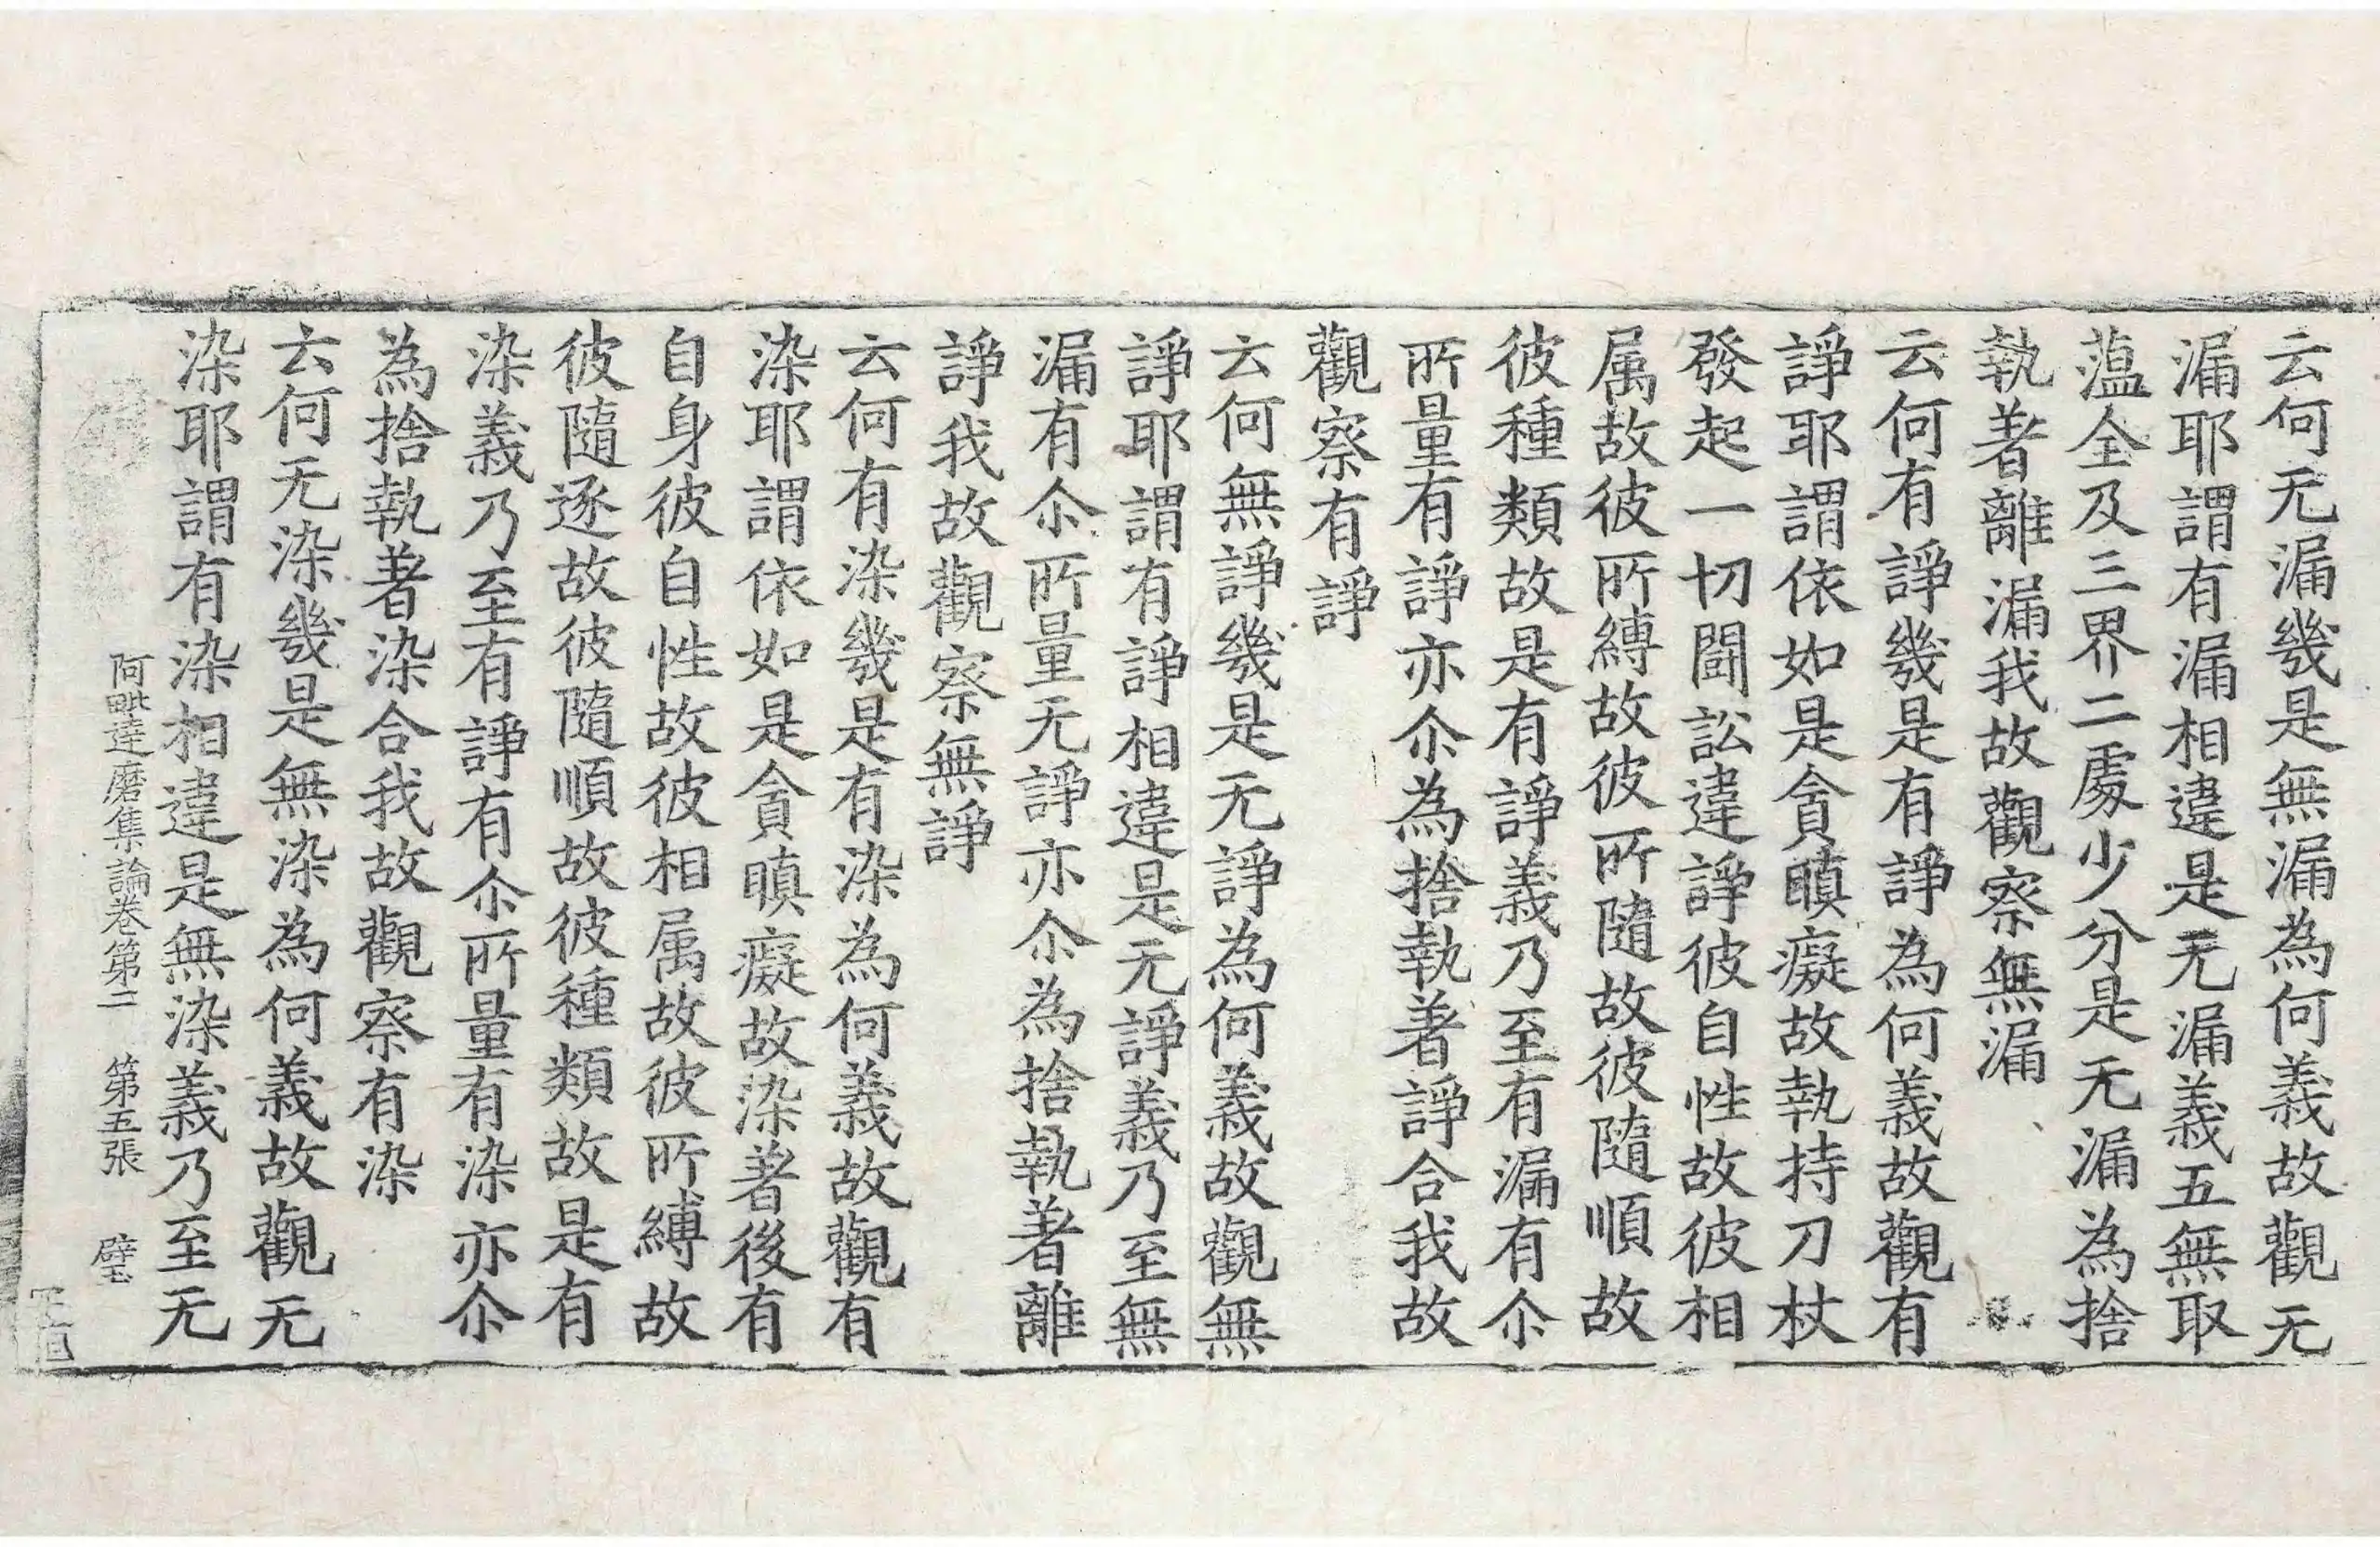 云何无漏幾是無漏為何義故觀无
漏耶謂有漏相違是无漏義五無取
蕰全及三界二處少分是无漏為捨
執著離漏我故觀察無漏
云何有諍幾是有諍為何義故觀有
諍耶謂依如是貪瞋癡故執持刀杖
發起一切鬪訟違諍彼自性故彼相
属故彼所縛故彼所隨故彼隨順故
彼種類故是有諍義乃至有漏有尒
所量有諍亦尒為捨執著諍合我故
觀察有諍
云何無諍幾是无諍為何義故觀無
諍耶謂有諍相違是无諍義乃至無
漏有尒所量无諍亦尒為捨執著離
諍我故觀察無諍
云何有染幾是有染為何義故觀有
染耶謂依如是貪瞋癡故染著後有
自身彼自性故彼相属故彼所縛故
彼隨逐故彼隨順故彼種類故是有
染義乃至有諍有尒所量有染亦尒
為捨執著染合我故觀察有染
云何无染幾是無染為何義故觀无
染耶謂有染相違是無染義乃至无
阿毗達磨集論卷第二 第五張 璧